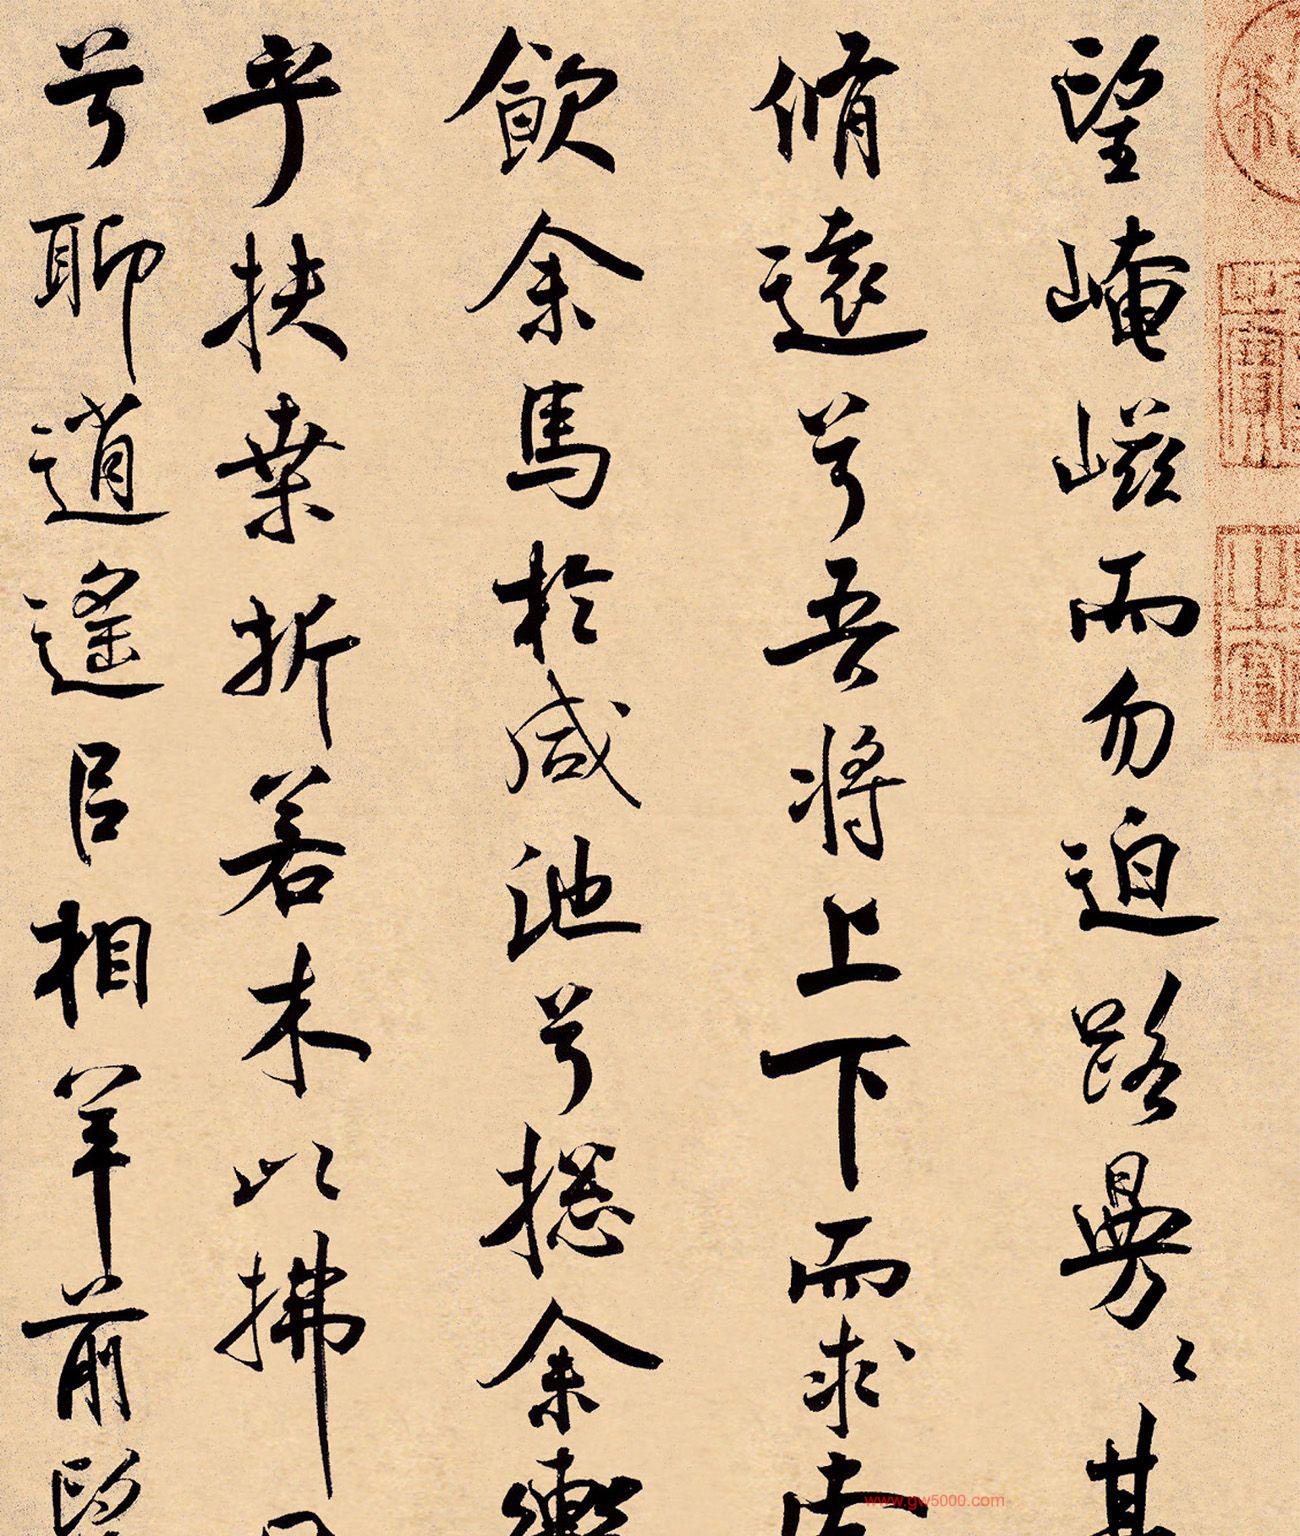 望崦嵫而勿迫路曼〻其
脩遠兮吾將上下而求索
飲余馬於咸池兮揔余轡
乎扶桒折若木以拂日
兮聊逍遙㠯相羊前望
www.gw5000.com